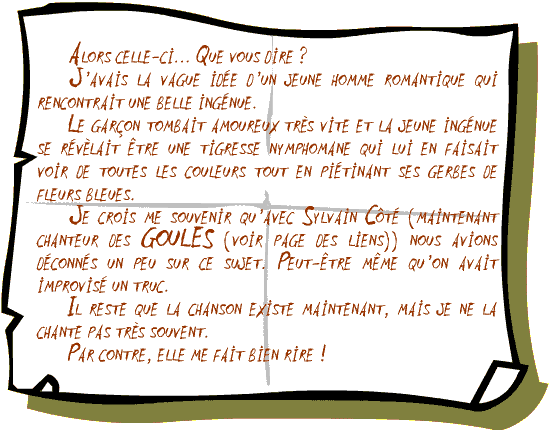 Alors celle-ci... Que vous dire ?
J'avais la vague idée d'un jeune homme romantique qui
rencontrait une belle ingénue.
Le garçon tombait amoureux très vite et la jeune ingénue
se révèlait être une tigresse nymphomane qui lui en faisait
voir de toutes les couleurs tout en piétinant ses gerbes de
fleurs bleues.
Je crois me souvenir qu'avec Sylvain Côté (maintenant
chanteur des GOULES (voir page des liens)) nous avions
déconnés un peu sur ce sujet. Peut-être même qu'on avait
improvisé un truc.
Il reste que la chanson existe maintenant, mais je ne la
chante pas très souvent.
Par contre, elle me fait bien rire !